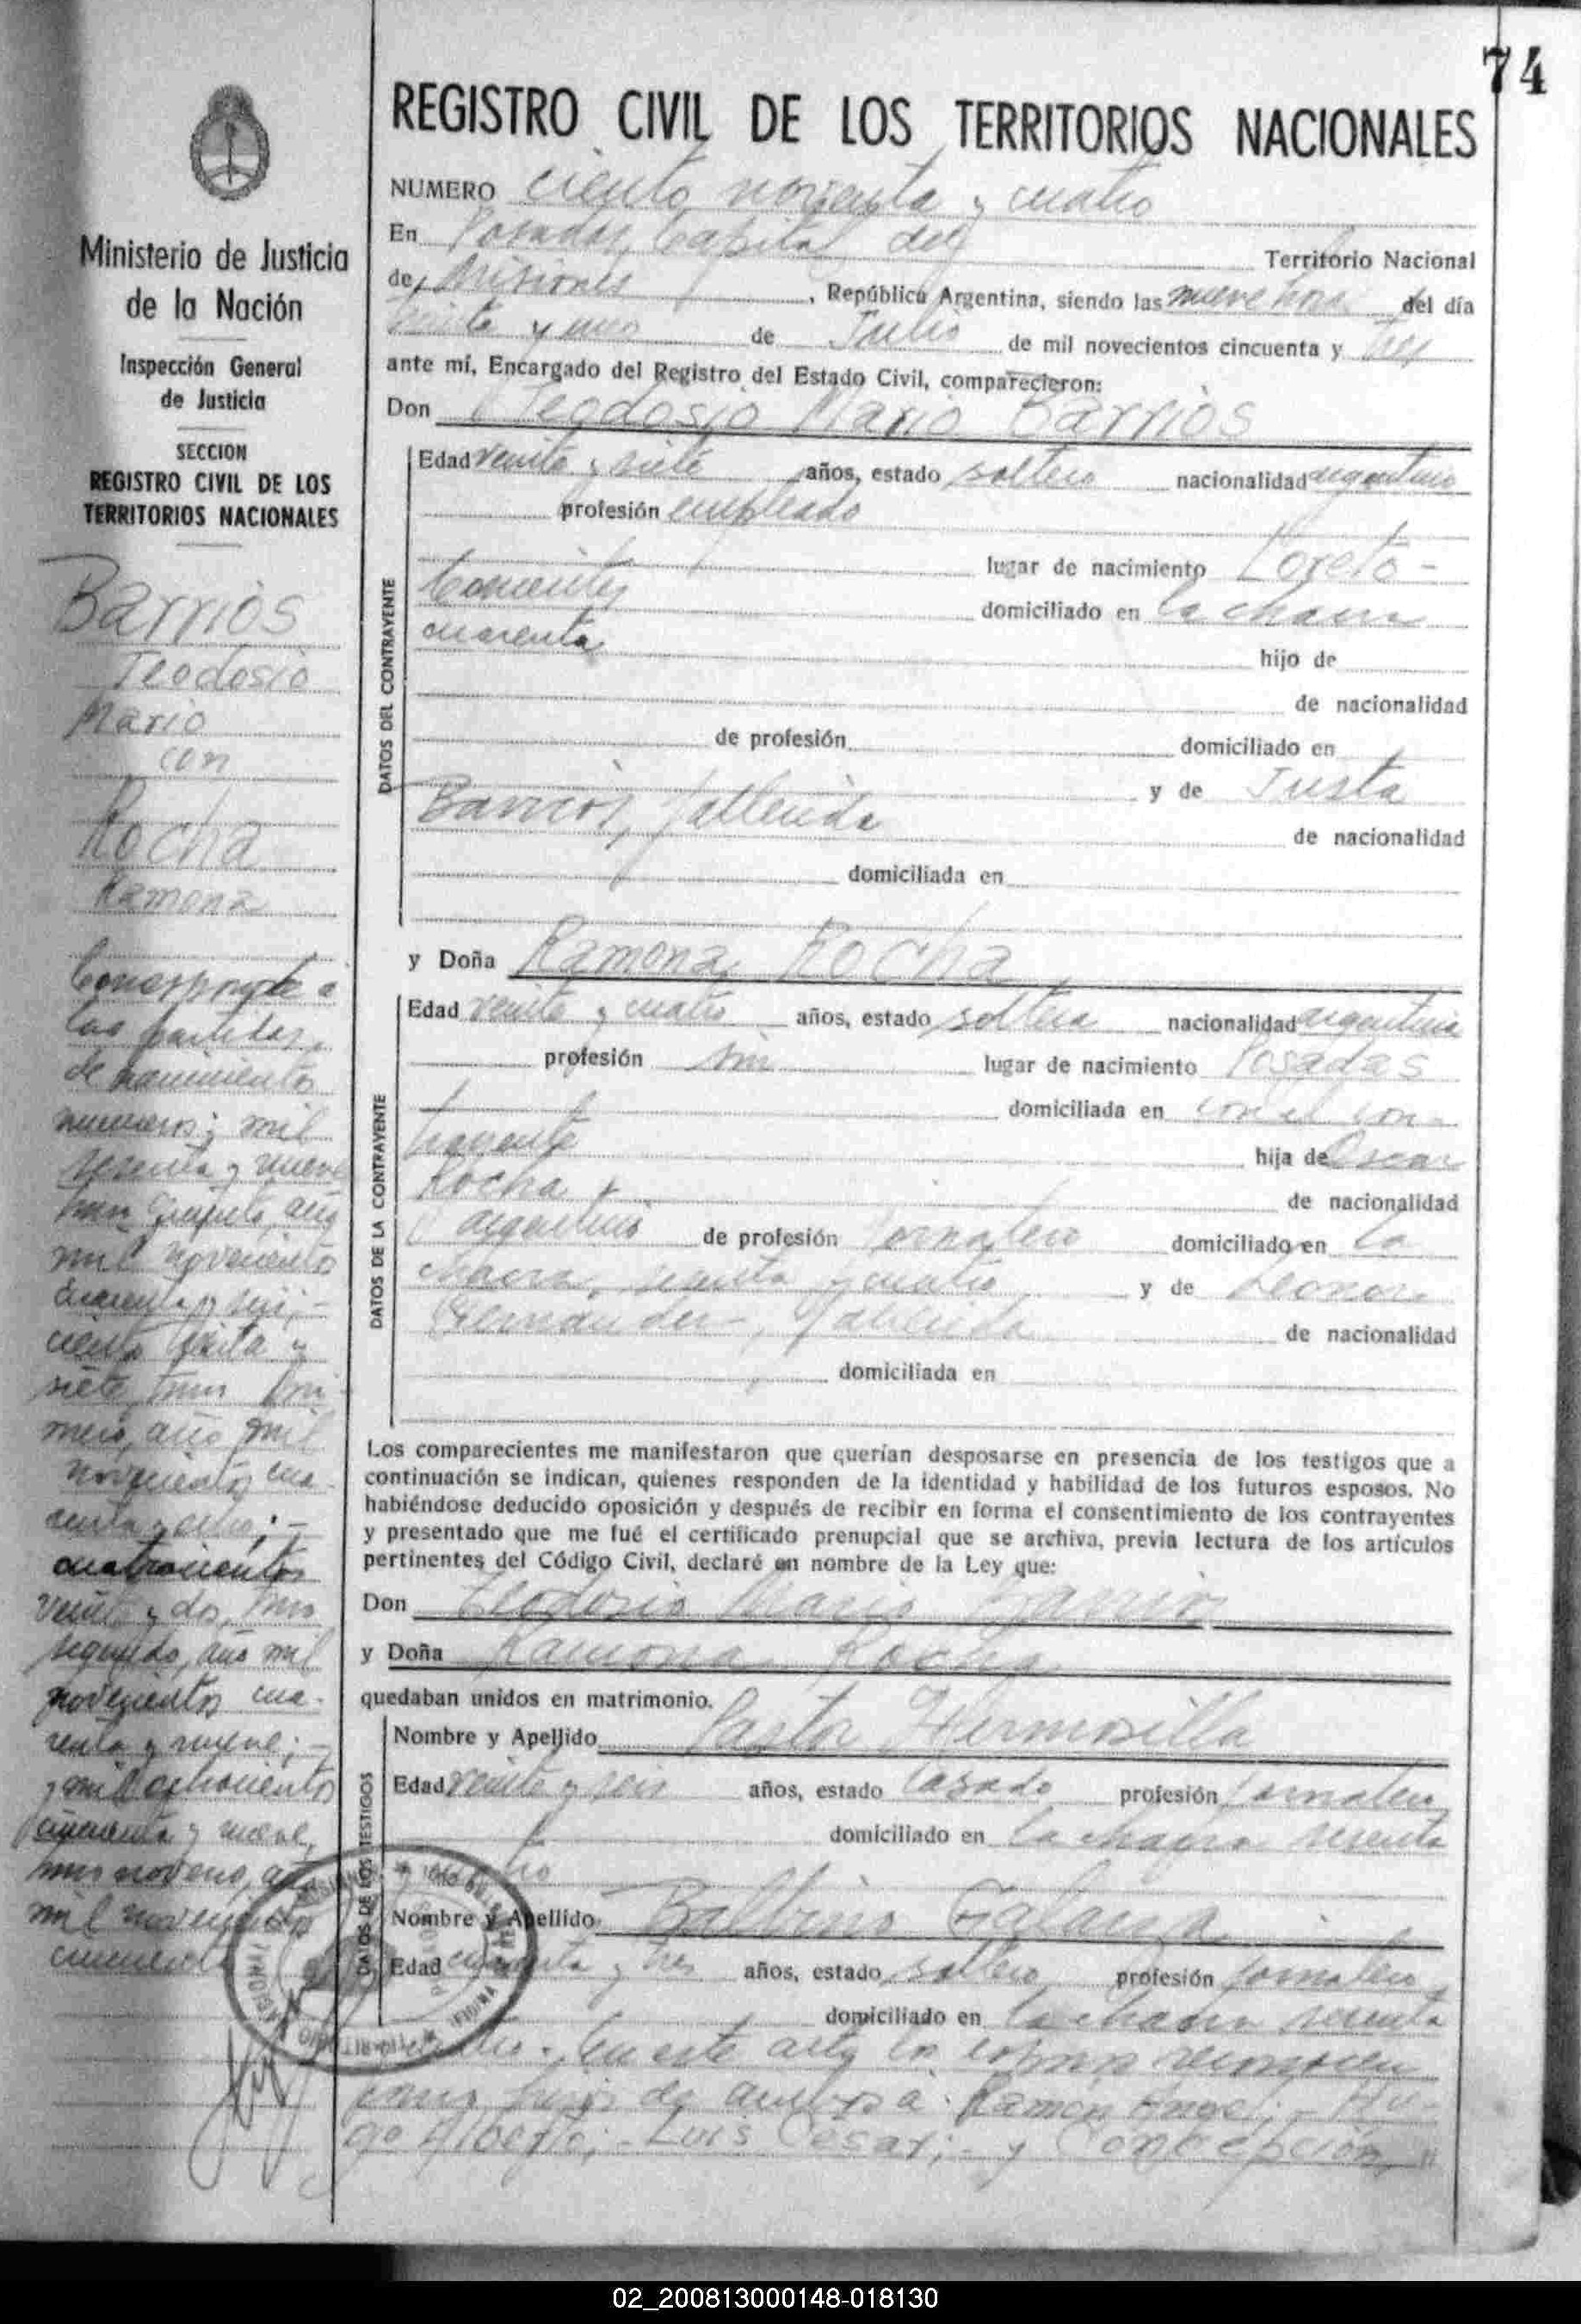 74
REGISTRO CIVIL DE LOS TERRITORIOS NACIONALES
NUMERO ciento noventa y cuatro
En Posadas, Capital del Territorio Nacional
de Misiones, República Argentina, siendo las nueve horas del día
treinta y uno de Julio de mil novecientos cincuenta y tres
ante mí, Encargado del Registro del Estado Civil, comparecieron:
Don Teodosio Mario Barrios
DATOS DEL CONTRAYENTE
Edad veinte y siete años, estado soltero nacionalidad argentino
profesión empleado
lugar de nacimiento Loreto -
Corrientes domiciliado en la chacra
cuarenta hijo de
de nacionalidad
de profesión domiciliado en
y de Justa
Barrios, fallecida de nacionalidad
domiciliada en
y Doña Ramona Rocha
DATOS DE LA CONTRAYENTE
Edad veinte y cuatro años, estado soltera nacionalidad argentina
profesión sin lugar de nacimiento Posadas
domiciliada en con el con-
trayente hija de Oscar
Rocha de nacionalidad
argentino de profesión jornalero domiciliado en la
chacra sesenta y cuatro y de Leonor
Fernandez, fallecida de nacionalidad
domiciliada en
Los comparecientes me manifestaron que querían desposarse en presencia de los testigos que a
continuación se indican, quienes responden de la identidad y habilidad de los futuros esposos. No
habiéndose deducido oposición y después de recibir en forma el consentimiento de los contrayentes
y presentado que me fué el certificado prenupcial que se archiva, previa lectura de los artículos
pertinentes del Código Civil, declaré en nombre de la Ley que:
Don Teodosio Mario Barrios
y Doña Ramona Rocha
quedaban unidos en matrimonio.
DATOS DE LOS TESTIGOS
Nombre y Apellido Pastor Hermosilla
Edad veinte y seis años, estado casado profesión jornalero
domiciliado en la chacra sesenta
Nombre y Apellido Balbino Galarza
Edad cuarenta y tres años, estado soltero profesión jornalero
domiciliado en la chacra sesenta
En este acto los esposos reconocen
como hijos de ambos a: Ramón Angel; - Hu-
go Alberto; - Luis Cesar; - y Concepción
Ministerio de Justicia
de la Nación
Inspección General
de Justicia
SECCION
REGISTRO CIVIL DE LOS
TERRITORIOS NACIONALES
Barrios
Teodosio
Mario
con
Rocha
Ramona
Corresponde a
las partidas
de nacimientos
numeros: mil
sesenta y nueve
tomo quinto, año
mil novecientos
cuarenta y seis; -
ciento treinta y
siete, tomo pri-
mero, año mil
novecientos cua-
renta y ocho; -
cuatrocientos
veinte y dos, tomo
segundo, año mil
novecientos cua-
renta y nueve; -
y mil ochocientos
cincuenta y nueve,
tomo noveno, año
mil novecientos
cincuenta
02_200813000148-018130